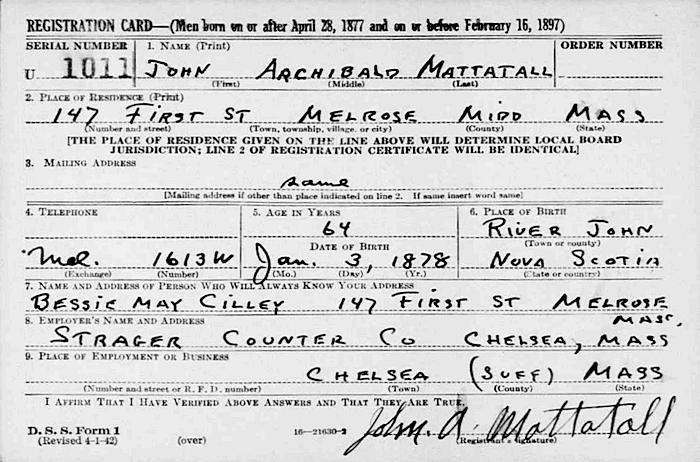 REGISTRATION CARD—(Men born on or after April 28, 1877 and on or before February 16, 1897)
SERIAL NUMBER 1. NAME (Print) ORDER NUMBER
U 1011 JOHN ARCHIBALD MATTATALL
(First) (Middle) (Last)
2. PLACE OF RESIDENCE (Print)
147 FIRST ST MELROSE MIDD MASS
(Number and street) (Town, township, village, or city) (County) (State)
[THE PLACE OF RESIDENCE GIVEN ON THE LINE ABOVE WILL DETERMINE LOCAL BOARD
JURISDICTION; LINE 2 OF REGISTRATION CERTIFICATE WILL BE IDENTICAL]
3. MAILING ADDRESS
same
[Mailing address if other than place indicated on line 2. If same insert word same]
4. TELEPHONE 5. AGE IN YEARS 6. PLACE OF BIRTH
64 RIVER JOHN
DATE OF BIRTH (Town or county)
Mel. 1613W Jan. 3, 1878 NOVA SCOTIA
(Exchange) (Number) (Mo.) (Day) (Yr.) (State or country)
7. NAME AND ADDRESS OF PERSON WHO WILL ALWAYS KNOW YOUR ADDRESS
BESSIE MAY CILLEY 147 FIRST ST MELROSE
MASS.
8. EMPLOYER'S NAME AND ADDRESS
STRAGER COUNTER CO CHELSEA, MASS
9. PLACE OF EMPLOYMENT OR BUSINESS
CHELSEA (SUFF) MASS
(Number and street or R. F. D. number) (Town) (County) (State)
I AFFIRM THAT I HAVE VERIFIED ABOVE ANSWERS AND THAT THEY ARE TRUE.
D. S. S. Form 1 John. A. Mattatall
(Revised 4-1-42) (over) 16—21630-2 (Registrant's signature)